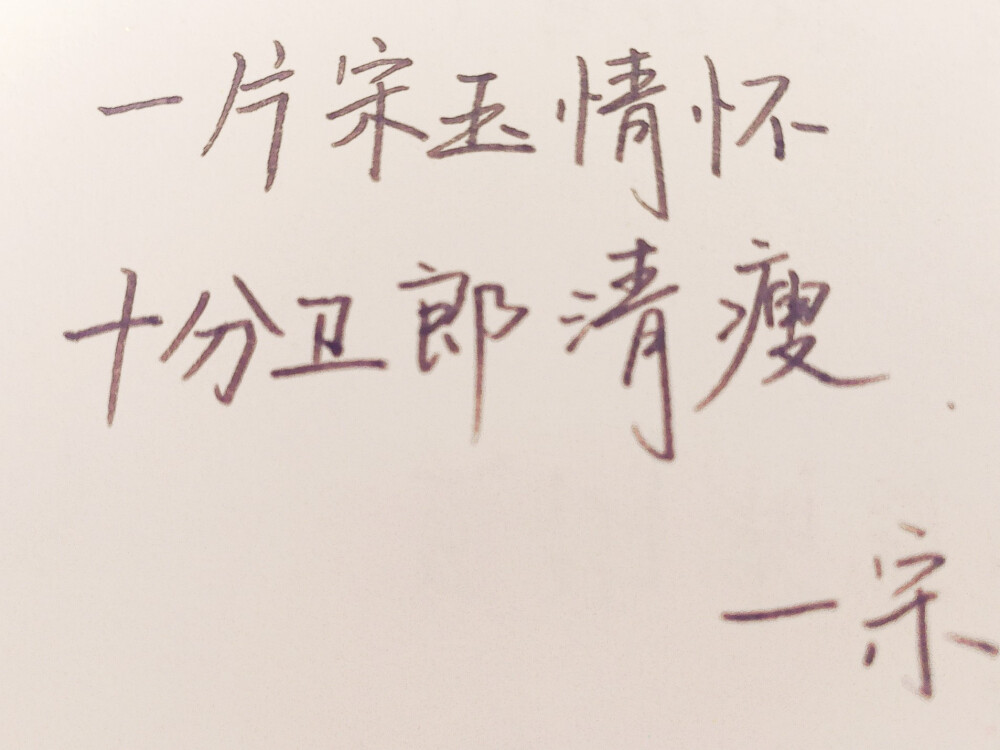 一片宋玉情怀
十分卫郎清瘦
一宗